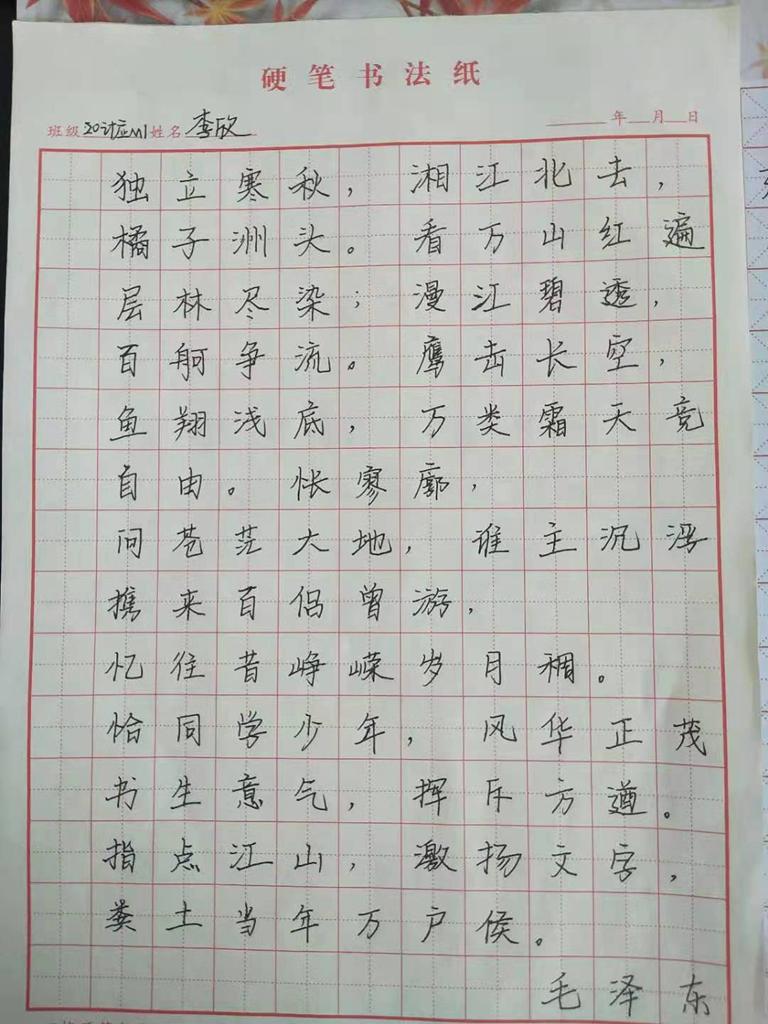 硬笔书法纸
班级 20计应M1 姓名 李欣 年 月 日
独立寒秋，湘江北去，
橘子洲头。看万山红遍
层林尽染；漫江碧透，
百舸争流。鹰击长空，
鱼翔浅底，万类霜天竞
自由。怅寥廓，
问苍茫大地，谁主沉浮
携来百侣曾游，
忆往昔峥嵘岁月稠。
恰同学少年，风华正茂
书生意气，挥斥方遒。
指点江山，激扬文字，
粪土当年万户侯。
毛泽东